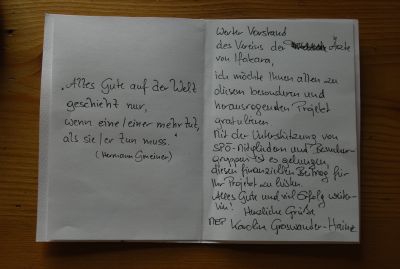 "Alles Gute auf der Welt
geschieht nur,
wenn eine/einer mehr tut,
als sie/er tun muss."
(Hermann Gmeiner)
Werter Vorstand
des Vereins der Ärzte
von Ifakara,
ich möchte Ihnen allen zu
diesem besonderen und
herausragenden Projekt
gratulieren.
Mit der Unterstützung von
SPÖ-Mitgliedern und Besucher-
gruppen ist es gelungen,
diesen finanziellen Beitrag für
Ihr Projekt zu leisten.
Alles Gute und viel Erfolg weiter-
hin!
Herzliche Grüße
MEP Karoline Graswander-Hainz